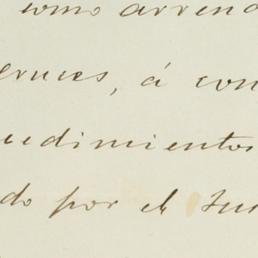 como arrend
eruces, á con
cedimientos
do por el Jus